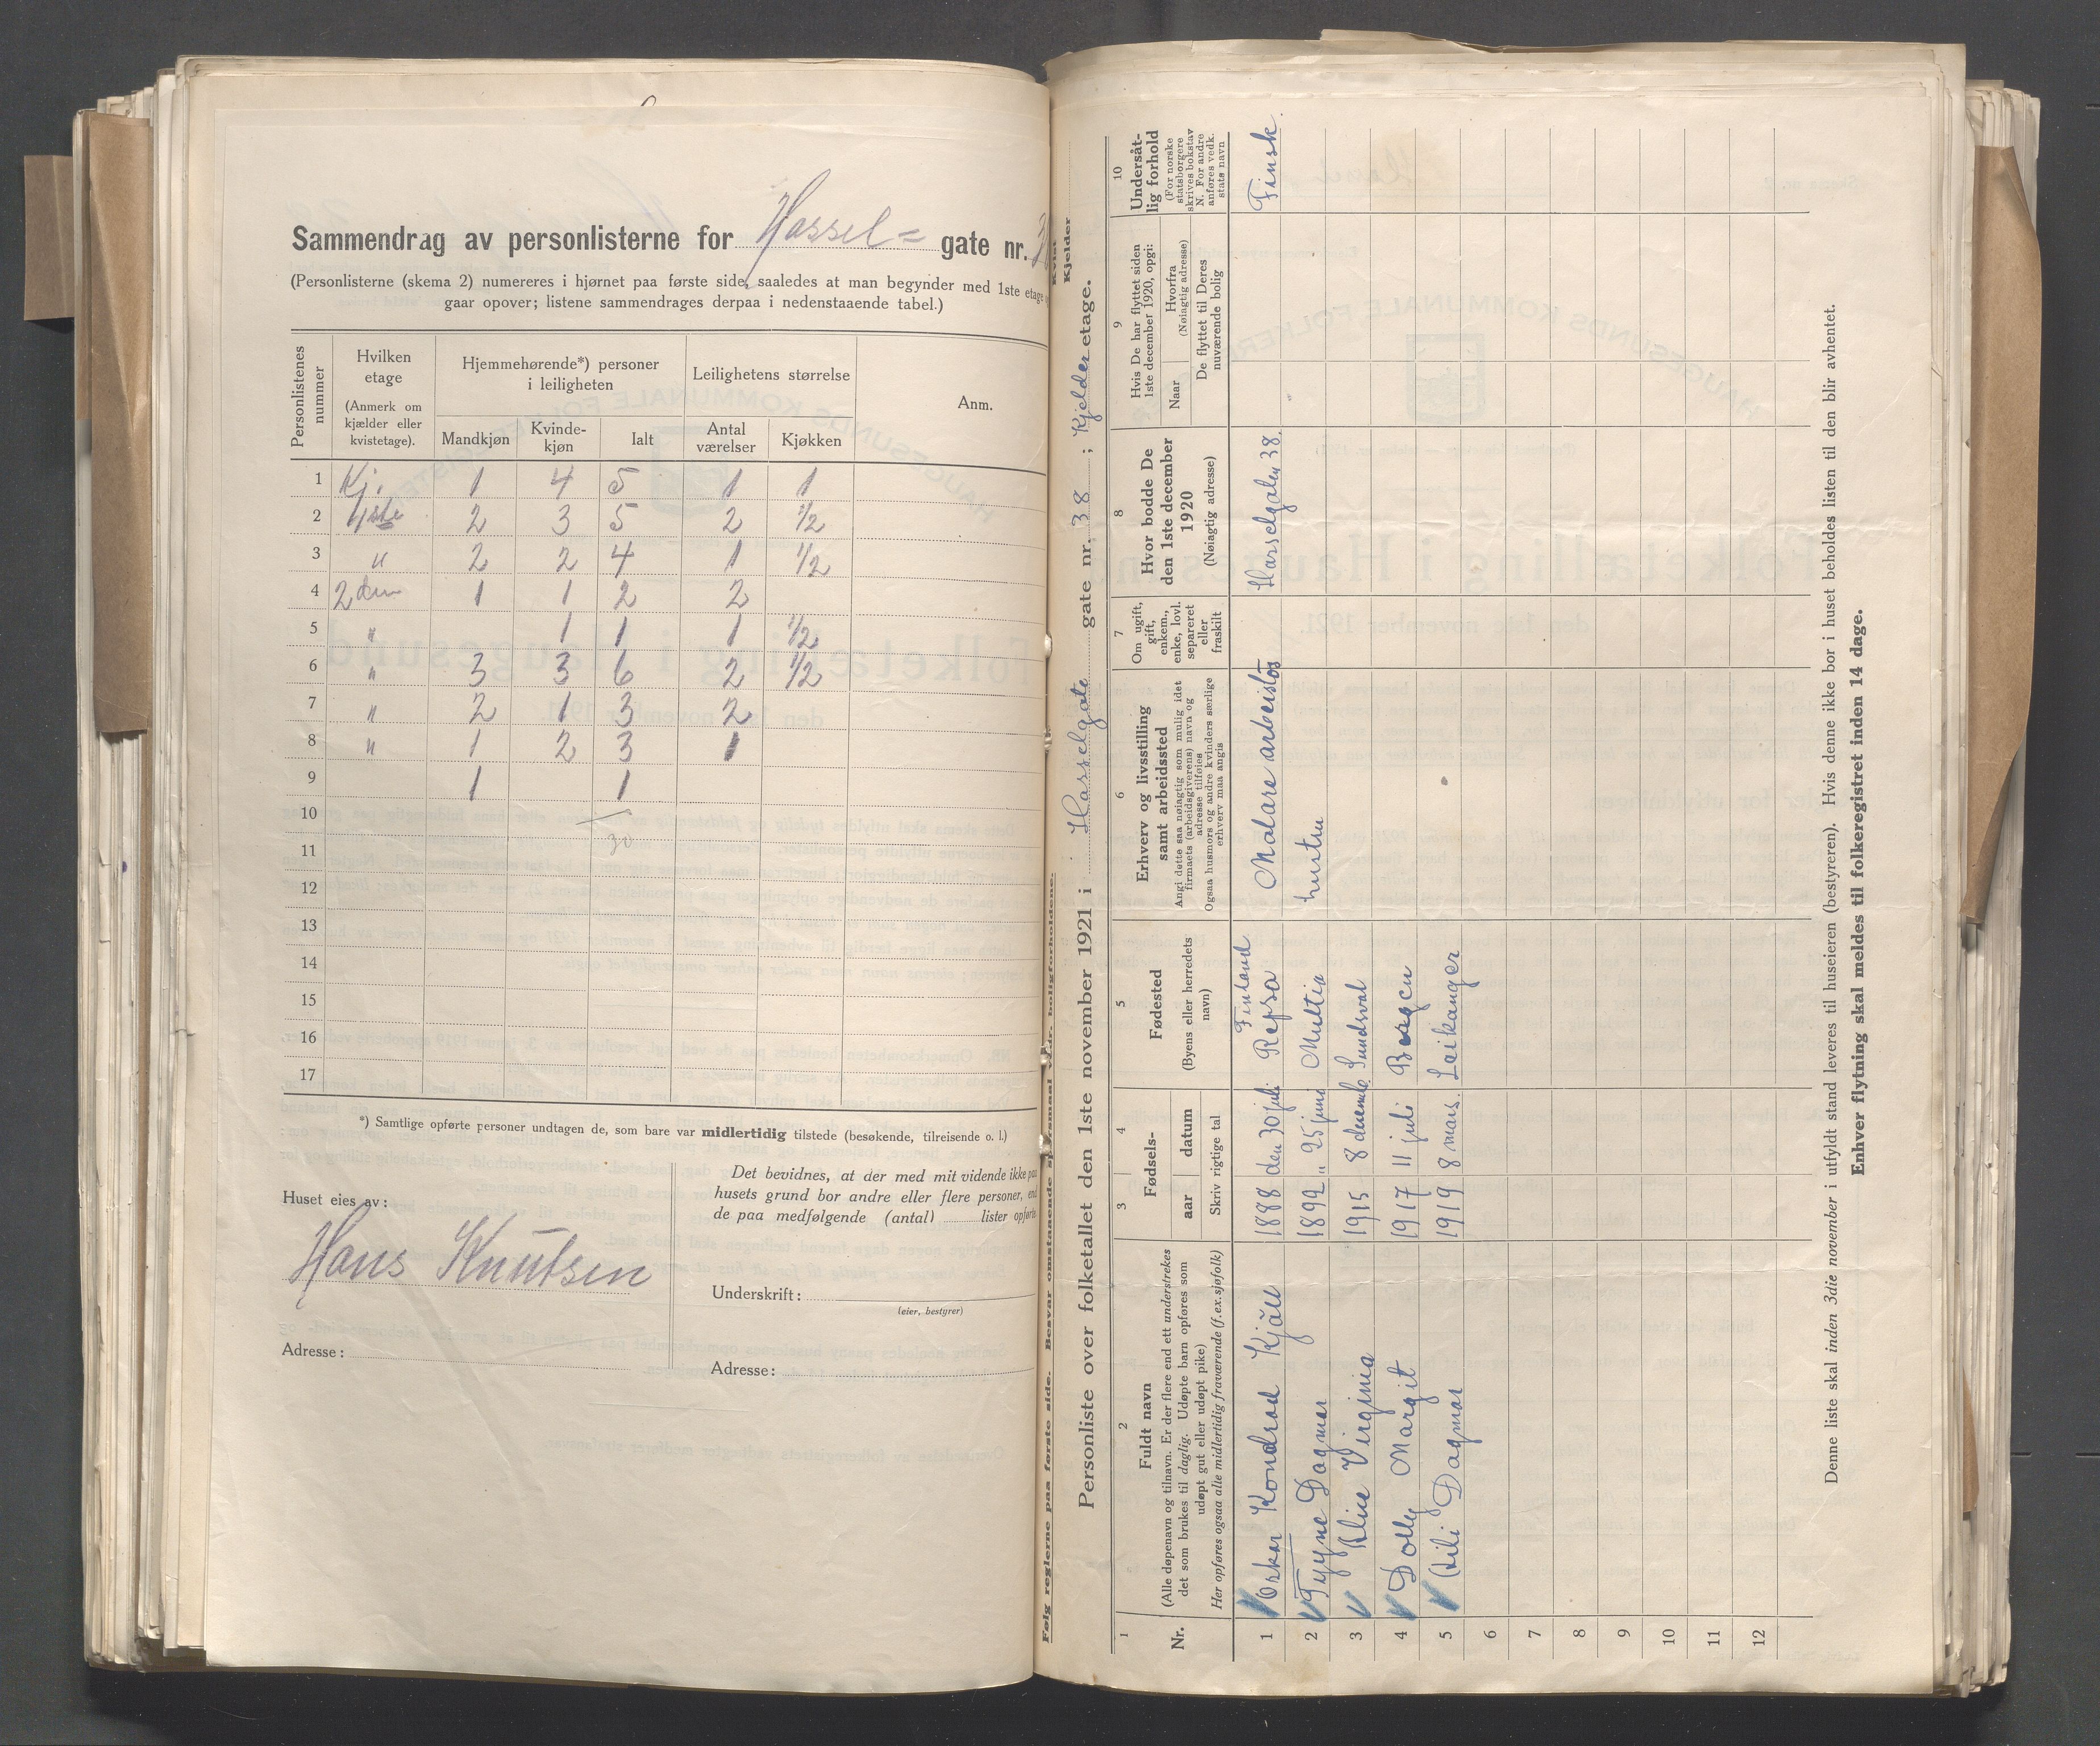 Sammendrag av personlisterne for Hassel= gate nr.
(Personlisterne (skema 2) numereres i hjørnet paa første side, saaledes at man begynder med 1ste etage
gaar opover; listene sammendrages derpaa i nedenstaaende tabel.)
Personlistenes nummer
Hvilken etage
(Anmerk om kjælder eller kvistetage).
Hjemmehørende*) personer i leiligheten
Leilighetens størrelse
Anm.
Mandkjøn Kvinde-kjøn Ialt Antal værelser Kjøkken
1 Kj. 1 4 5 1 1
2 1ste 2 3 5 2 1/2
3 " 2 2 4 1 1/2
4 2den 1 1 2 2
5 " 1 1 1 1/2
6 " 3 3 6 2 1/2
7 " 2 1 3 2
8 " 1 2 3 1
9 1 1
10
30
11
12
13
14
15
16
17
*) Samtlige opførte personer undtagen de, som bare var midlertidig tilstede (besøkende, tilreisende o. l.)
Huset eies av:
Hans Knutsen
Adresse:
Det bevidnes, at der med mit vidende ikke paa
husets grund bor andre eller flere personer, end
de paa medfølgende (antal) lister opførte
Underskrift:
(eier, bestyrer)
Adresse:
Følg reglerne paa første side. Besvar omstaaende spørsmaal vedr. boligforholdene.
Kvist
Kjelder
Personliste over folketallet den 1ste november 1921 i Hasselgate gate nr. 38 ; Kjelder etage.
1 2 3 4 5 6 7 8 9 10
Nr.
Fuldt navn
(Alle døpenavn og tilnavn. Er der flere end ett understrekes
det som brukes til daglig. Udøpte barn opføres som
udøpt gut eller udøpt pike)
Her opføres ogsaa alle midlertidig fraværende (f. ex. sjøfolk)
Fødsels-
aar datum
Skriv rigtige tal
Fødested
(Byens eller herredets navn)
Erhverv og livsstilling
samt arbeidssted
Angi dette saa nøiagtig som mulig idet
firmaets (arbeidsgiverens) navn og
adresse tilføies
Ogsaa husmors og andre kvinders særlige
erhverv maa angis
Om ugift, gift, enkem., enke, lovl. separeret eller fraskilt
Hvor bodde De
den 1ste december
1920
(Nøiagtig adresse)
Hvis De har flyttet siden
1ste december 1920, opgi:
Naar
Hvorfra
(Nøiagtig adresse)
De flyttet til Deres
nuværende bolig
Undersåt-
lig forhold
(For norske
statsborgere
skrives bokstav
N. For andre
anføres vedk.
stats navn
Finland
1 Oskar Kondrad Kjäll 1888 den 30 juli Repso Malare arbeistos Hasselgaten 38. Finsk
2 Tyyne Dagmar 1892 " 25 juni Multia hustru
3 Elice Virginia 1915 8 decemb. Sundsval
4 Dolly Margit 1917 11 juli Bergen
5 Lili Dagmar 1919 8 mars. Leikanger
6
7
8
9
10
11
12
Denne liste skal inden 3die november i utfyldt stand leveres til huseieren (bestyreren). Hvis denne ikke bor i huset beholdes listen til den blir avhentet.
Enhver flytning skal meldes til folkeregistret inden 14 dage.